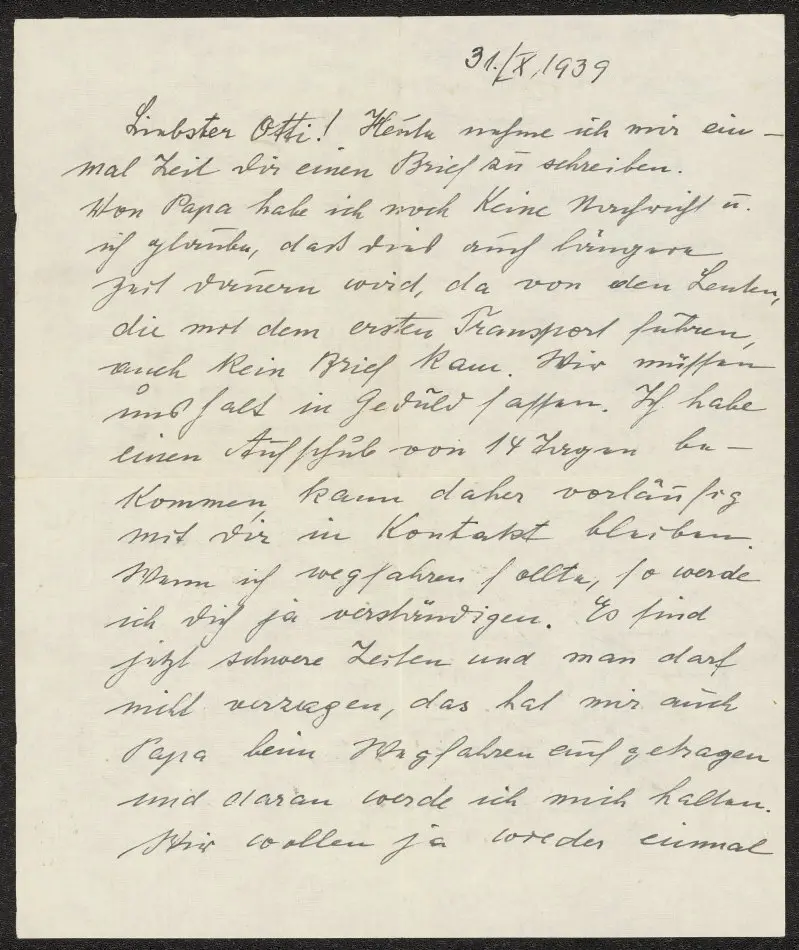 31./X. 1939
Liebster Otti! Heute nehme ich mir ein-
mal Zeit dir einen Brief zu schreiben.
Von Papa habe ich noch keine Nachricht u.
ich glaube, daß dies auch längere
Zeit dauern wird, da von den Leuten,
die mit dem ersten Transport fuhren,
auch kein Brief kam. Wir müssen
uns halt in Geduld fassen. Ich habe
einen Aufschub von 14 Tagen be-
kommen, kann daher vorläufig
mit dir in Kontakt bleiben.
Wenn ich wegfahren sollte, so werde
ich dich ja verständigen. Es sind
jetzt schwere Zeiten und man darf
nicht verzagen, das hat mir auch
Papa beim Wegfahren aufgetragen
und daran werde ich mich halten.
Wir wollen ja wieder einmal